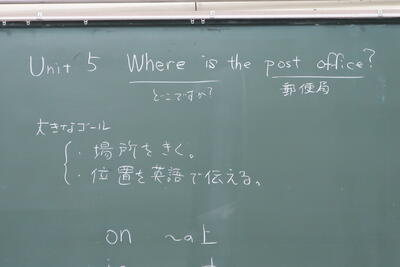 Unit 5 Where is the post office?
どこですか? 郵便局
大きなゴール
・場所をきく。
・位置を英語で伝える。
on ～の上